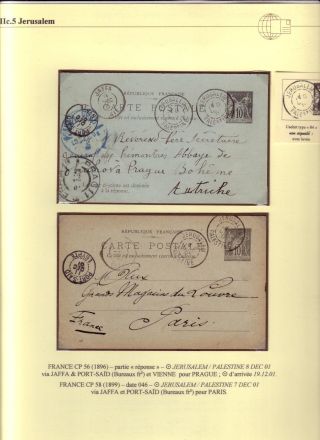 IIc.5 Jerusalem
RÉPUBLIQUE FRANÇAISE
CARTE POSTALE
JAFFA
JERUSALEM
PALESTINE
10
Révérend Père Secrétaire
des Prémontrés Abbaye de
Prague Bohême
Autriche
Cachet type « 84 »
RÉPUBLIQUE FRANÇAISE
CARTE POSTALE
JERUSALEM
PALESTINE
10
PORT-SAID
EGYPTE
Grands Magasins du Louvre
Paris
France
FRANCE CP 56 (1896) – partie « réponse » – JERUSALEM / PALESTINE 8 DEC 01
via JAFFA & PORT-SAÏD (Bureaux frs) et VIENNE pour PRAGUE ; d'arrivée 19.12.01.
FRANCE CP 58 (1899) – date 046 – JERUSALEM / PALESTINE 7 DEC 01
via JAFFA et PORT-SAÏD (Bureaux frs) pour PARIS.